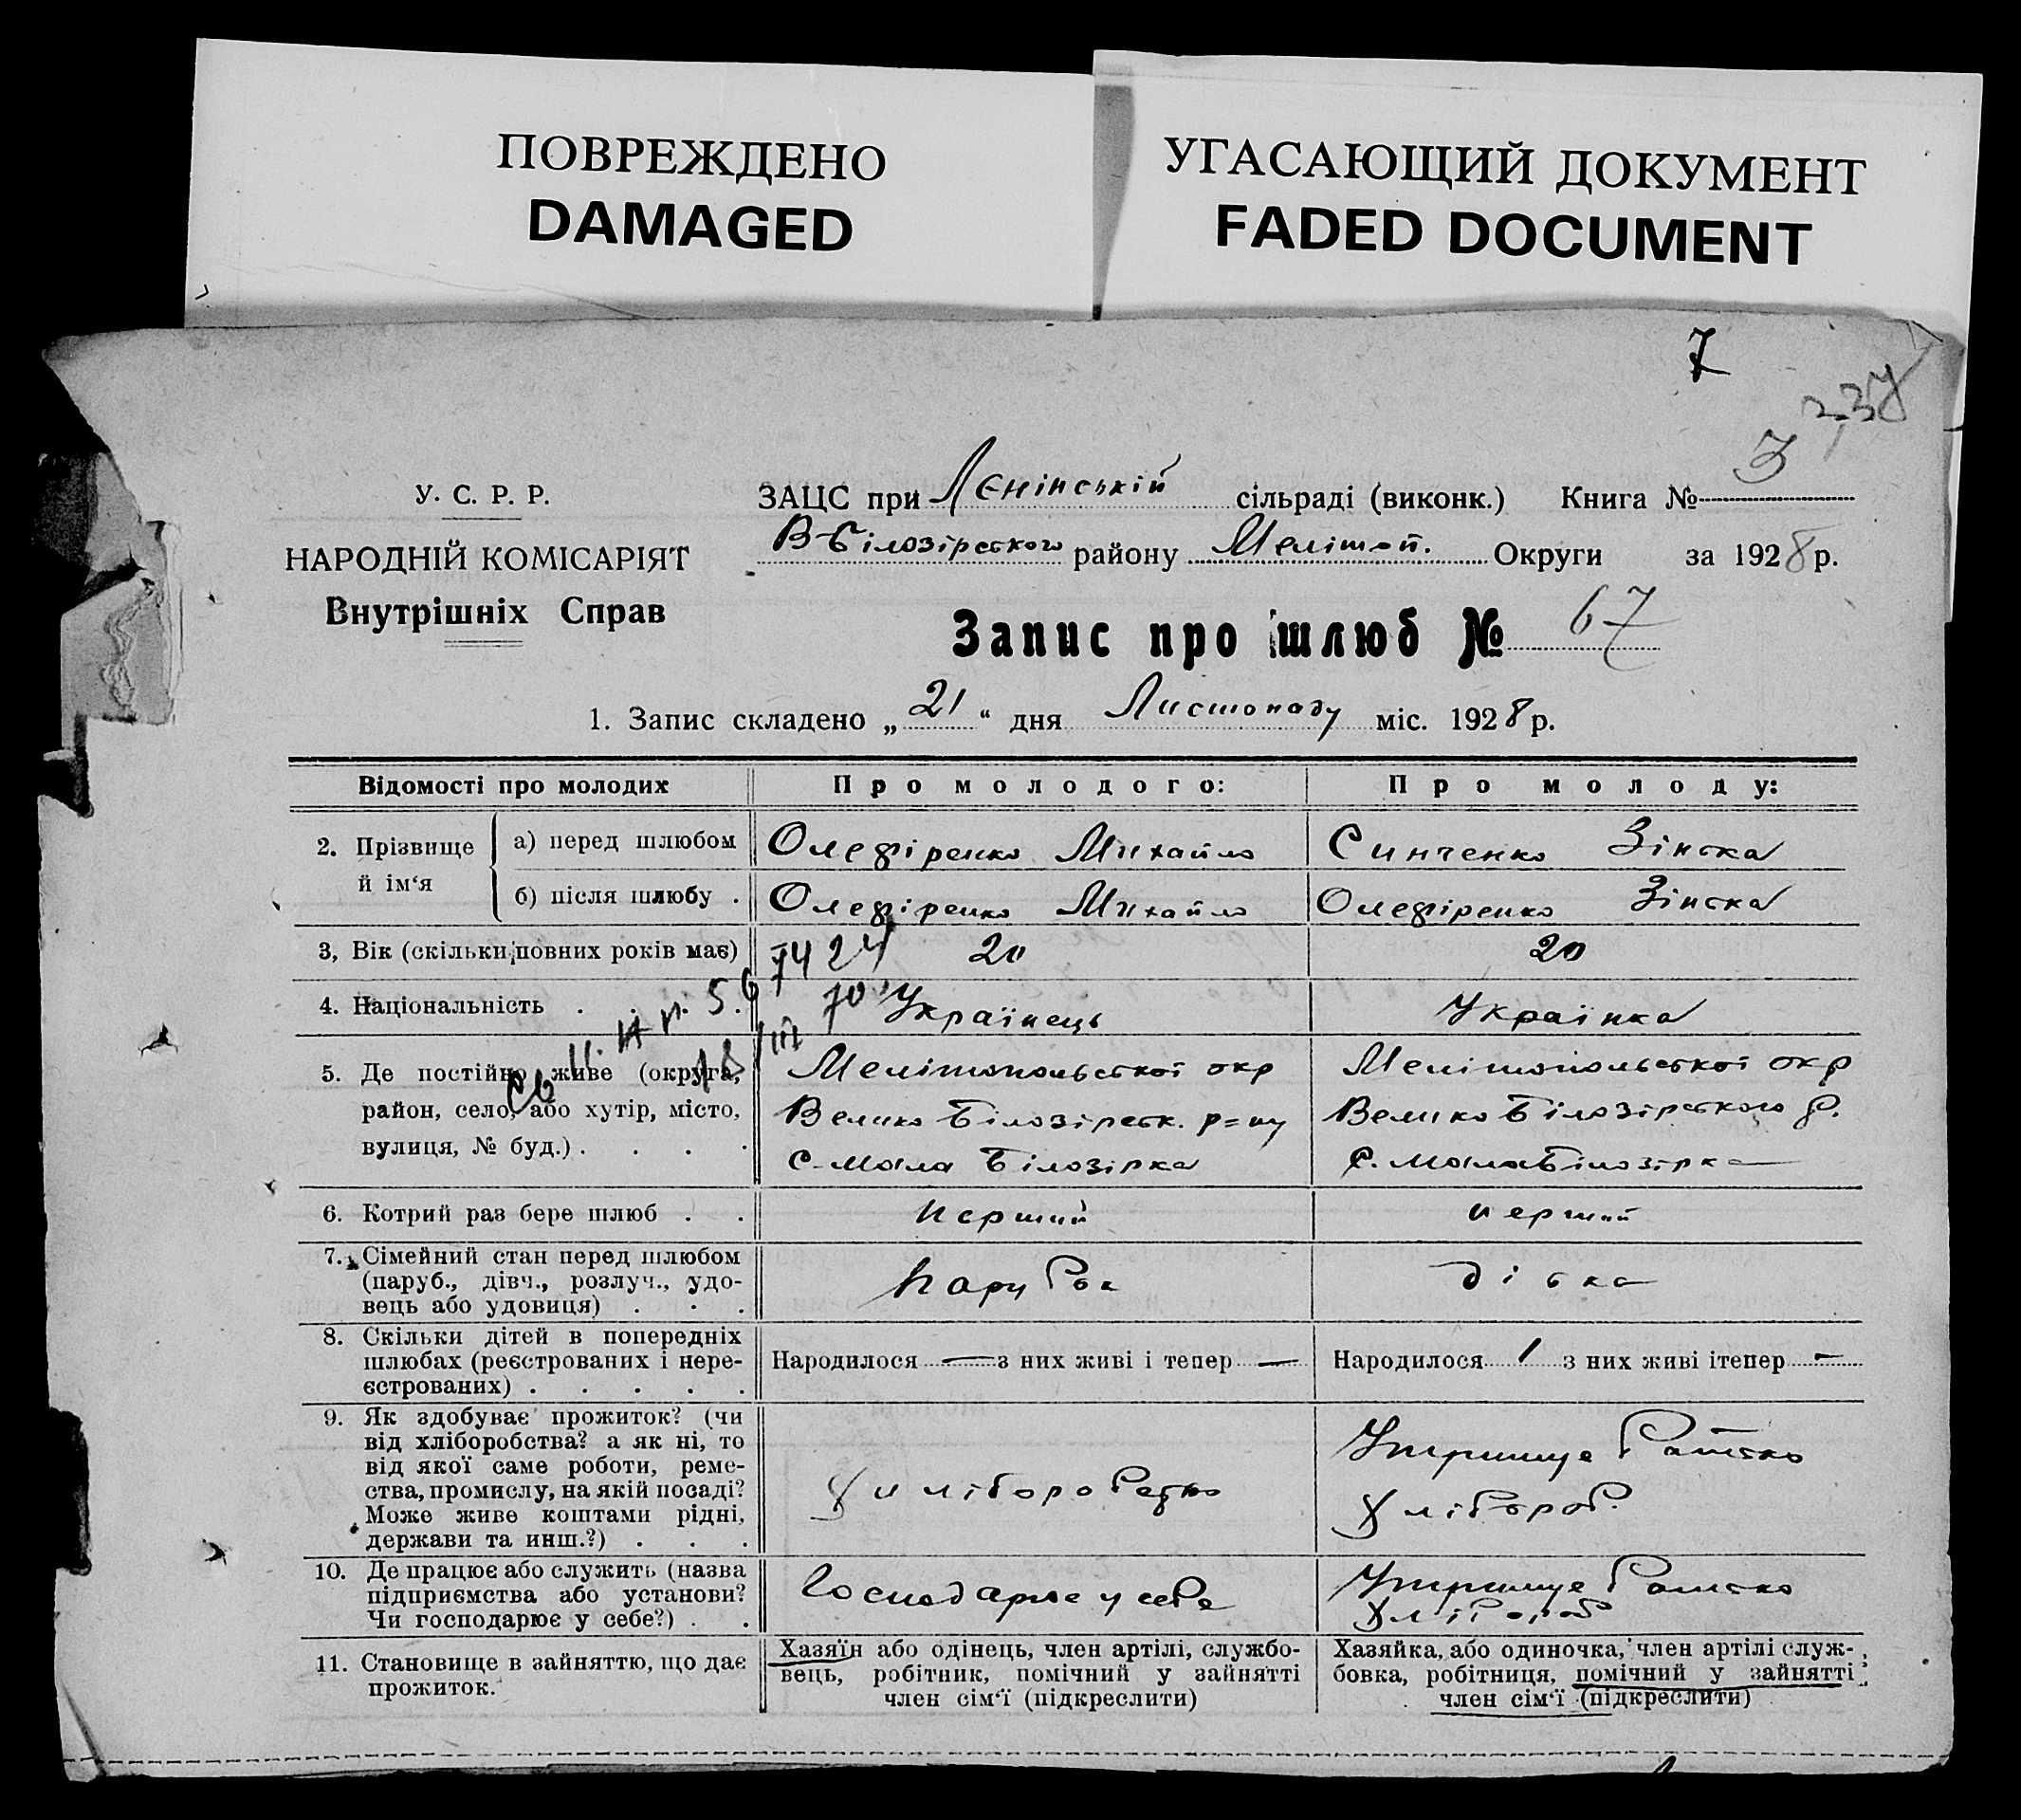 ПОВРЕЖДЕНО
DAMAGED
УГАСАЮЩИЙ ДОКУМЕНТ
FADED DOCUMENT
7
У. С. Р. Р.
НАРОДНІЙ КОМІСАРІЯТ
Внутрішніх Справ
ЗАЦС при Лєнінській сільраді (виконк.) Книга № 3
В-Білозірського району Мелітоп. Округи за 1928 р.
Запис про шлюб № 67
1. Запис складено „ 21 “ дня Листопаду міс. 1928 р.
Відомості про молодих
Про молодого:
Про молоду:
2. Прізвище й ім‘я
а) перед шлюбом Олефіренко Михайло Синченко Зінька
б) після шлюбу . Олефіренко Михайло Олефіренко Зінька
3, Вік (скільки повних років має) 20 20
4. Національність . . . Українець Українка
5. Де постійно живе (округа,
район, село, або хутір, місто,
вулиця, № буд.) . . . .
Мелітопольської окр
Велико Білозірськ. р=ну
с. Мала Білозірка
Мелітопольської окр
Велико Білозірського р.
с. Мала Білозірка
6. Котрий раз бере шлюб . . перший перший
7. Сімейний стан перед шлюбом
(паруб., дівч., розлуч., удо-
вець або удовиця) . . .
парубок
дівка
8. Скільки дітей в попередніх
шлюбах (реєстрованих і нере-
єстрованих) . . . . .
Народилося — з них живі і тепер —
Народилося 1 з них живі ітепер —
9. Як здобуває прожиток? (чи
від хліборобства? а як ні, то
від якої саме роботи, реме-
ства, промислу, на якій посаді?
Може живе коштами рідні,
держави та инш.?) . . .
Утримує батько
хлібороб.
10. Де працює або служить (назва
підприємства або установи?
Чи господарює у себе?) . .
Господарює у себе
Утримує батько
хлібороб
11. Становище в зайняттю, що дає
прожиток.
Хазяїн або одінець, член артілі, службо-
вець, робітник, помічний у зайнятті
член сім‘ї (підкреслити)
Хазяйка, або одиночка, член артілі служ-
бовка, робітниця, помічний у зайнятті
член сім‘ї (підкреслити)